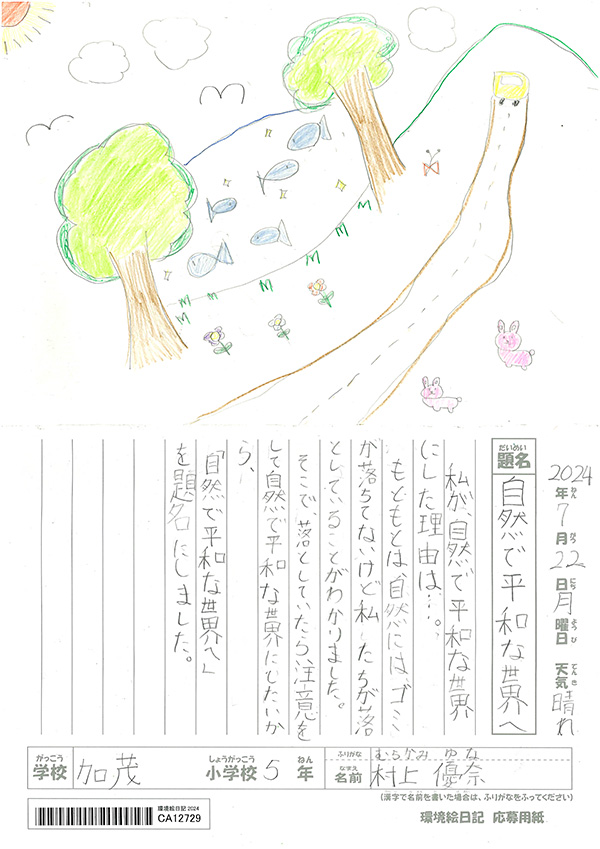 2024年7月22日月曜日 天気晴れ
ねん がつ にち ようび てんき
だいめい
題名 自然で平和な世界へ
私が、自然で平和な世界
にした理由は…。
もともとは、自然には、ゴミ
が落ちてないけど私たちが落
としていることがわかりました。
そこで、落としていたら注意を
して自然で平和な世界にしたいか
ら、
「自然で平和な世界へ」
を題名にしました。
がっこう しょうがっこう ねん ふりがな むらかみ ゆな
学校 加茂 小学校 5年 なまえ 名前 村上 優奈
(漢字で名前を書いた場合は、ふりがなをふってください)
環境絵日記 2024
CA12729
環境絵日記 応募用紙